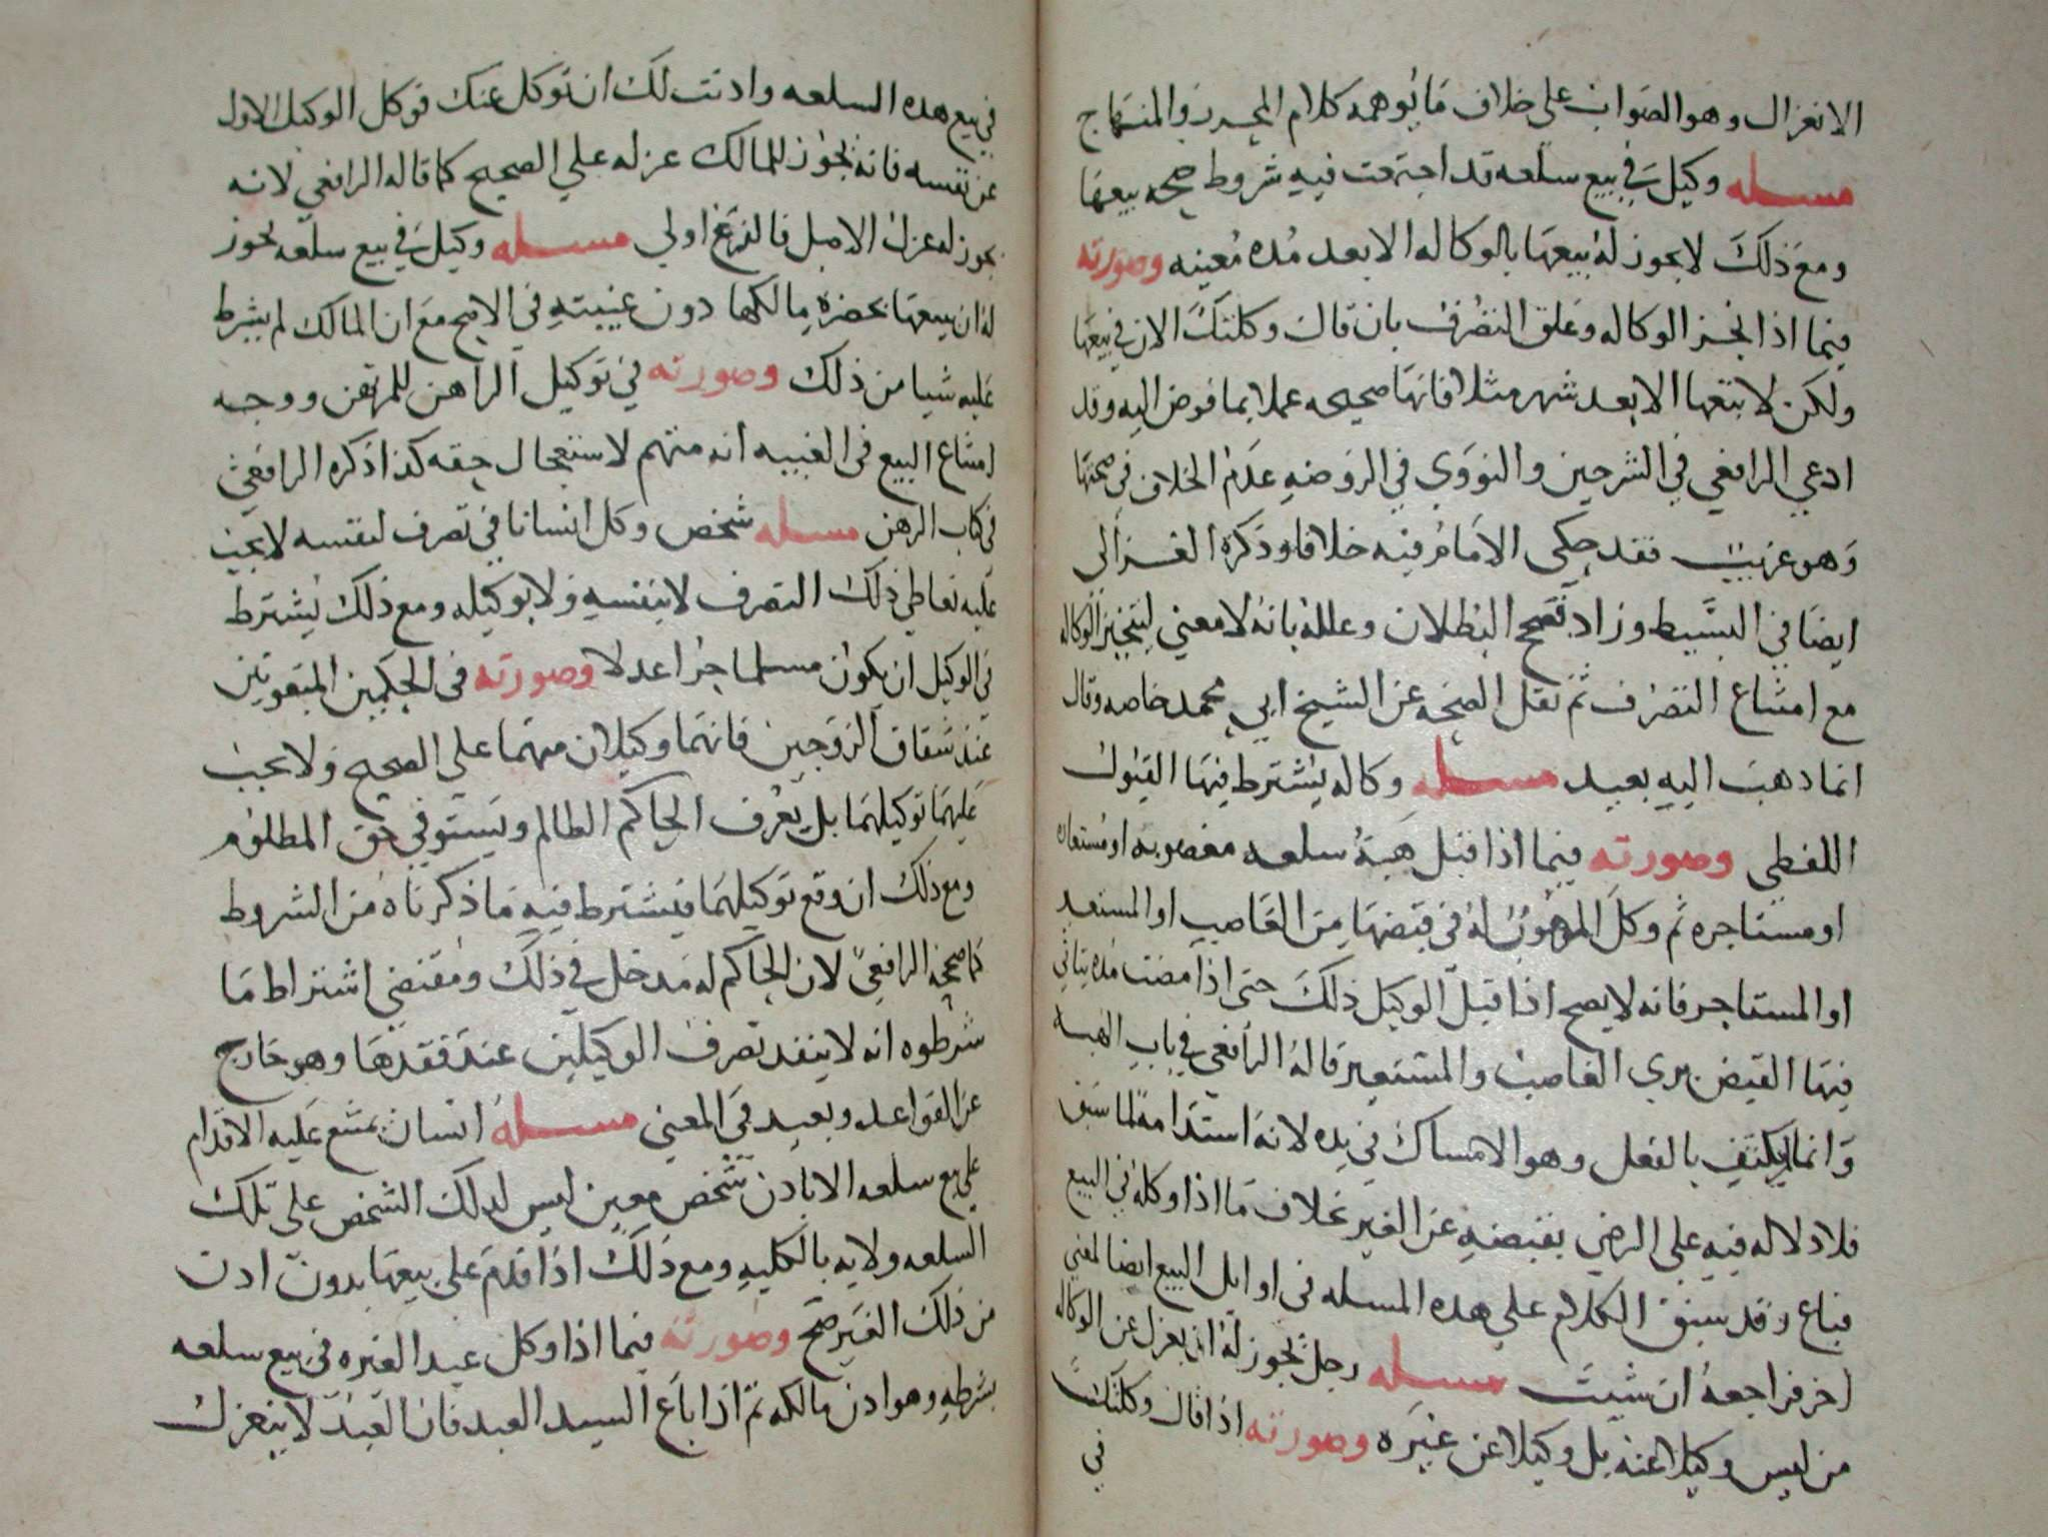 الانعزال وهو الصواب على خلاف ما يوهمه كلام المحرر والمنهاج
مسله وكيل في بيع سلعه قد اجتمعت فيه شروط صحه بيعها
ومع ذلك لا يجوز له بيعها بالوكاله الا بعد مده معينه وصورته
فيما اذا نجز الوكاله وعلق التصرف بان قال وكلتك الان في بيعها
ولكن لا تبعها الا بعد شهر مثلا فانها صحيحه عملا بما فوض اليه وقد
ادعي الرافعي في الشرحين والنووي في الروضه عدم الخلاف في صحتها
وهو غريب فقد حكى الامام فيه خلافا وذكره الغزالي
ايضا في البسيط وزاد فصحح البطلان وعلله بانه لا معني لتنجيز الوكاله
مع امتناع التصرف ثم نقل الصحه عن الشيخ ابي محمد خاصه وقال
انما ذهب اليه بعيد مسله وكاله يشترط فيها القبول
اللفظي وصورته فيما اذا قبل هبة سلعه مغصوبه او مستعاره
او مستاجره ثم وكل الموهوب له في قبضها من الغاصب او المستعير
او المستاجر فانه لا يصح اذا قبل الوكيل ذلك حتى اذا مضت مده يتاتي
فيها القبض بري الغاصب والمستعير قاله الرافعي في باب الهبه
وانما لم يكتف بالفعل وهو الامساك في يده لانه استدامة لما سبق
فلا دلاله فيه على الرضي بقبضه عن الغير بخلاف ما اذا وكله في البيع
فباع وقد سبق الكلام علي هذه المسله في اوايل البيع ايضا لمعني
اخر فراجعه ان شيت مسله رجل يجوز له ان يعزل عن الوكاله
من ليس وكيلا عنه بل وكيلا عن غيره وصورته اذا قال وكلتك
في
في بيع هذه السلعه واذنت لك ان توكل عنك فوكل الوكيل الاول
عن نفسه فانه يجوز للمالك عزله علي الصحيح كما قاله الرافعي لانه
يجوز له عزل الاصل فالفرع اولي مسله وكيل في بيع سلعه يجوز
له ان يبيعها بحضرة مالكها دون غيبته في الاصح مع ان المالك لم يشرط
عليه شيا من ذلك وصورته في توكيل الراهن للمرتهن ووجه
امتناع البيع في الغيبه انه متهم لاستعجال حقه كذا ذكره الرافعي
في كتاب الرهن مسله شخص وكل انسانا في تصرف لنفسه لا يجب
عليه تعاطي ذلك التصرف لا بنفسه ولا بوكيله ومع ذلك يشترط
في الوكيل ان يكون مسلما حرا عدلا وصورته في الحكمين المبعوثين
عند شقاق الزوجين فانهما وكيلان منهما علي الصحيح ولا يجب
عليهما توكيلهما بل يعرف الحاكم الظالم ويستوفي حق المظلوم
ومع ذلك ان وقع توكيلهما فيشترط فيه ما ذكرناه من الشروط
كما صححه الرافعي لان الحاكم له مدخل في ذلك ومقتضي اشتراط ما
شرطوه انه لا ينفد تصرف الوكيلين عند فقدها وهو خارج
عن القواعد وبعيد في المعني مسله انسان يمتنع عليه الاقدام
على بيع سلعه الا باذن شخص معين ليس لذلك الشخص على تلك
السلعه ولايه بالكليه ومع ذلك اذا اقدم على بيعها بدون اذن
من ذلك الغير صح وصورته فيما اذا وكل عبد الغيره في بيع سلعه
بشرطه وهو اذن مالكه ثم اذا باع السيد العبد فان العبد لا ينعزل